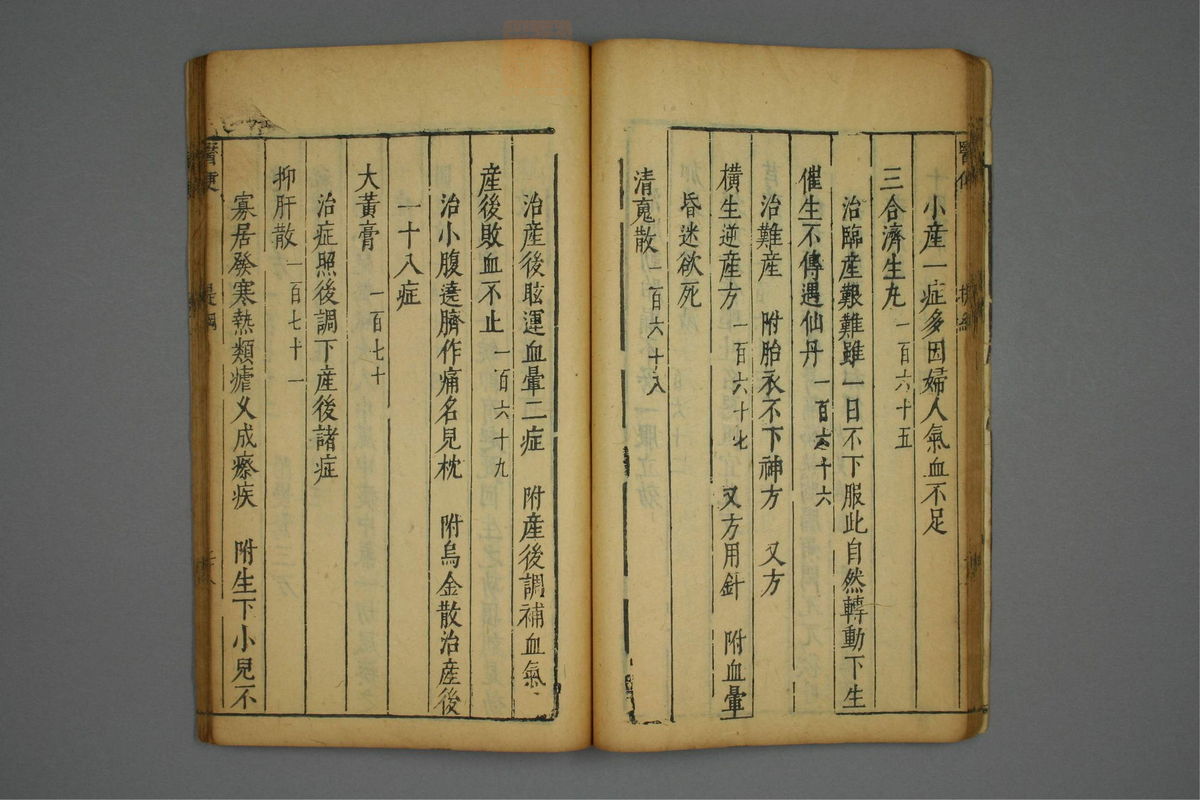 小産一症多因婦人氣血不足
三合濟生丸 一百六十五
治臨産艱難雖一日不下服此自然轉動下生
催生不傳遇仙丹 一百六十六
治難産 附胎衣不下神方 又方
橫生逆産方 一百六十七 又方用針 附血暈
昏迷欲死
清䰟散 一百六十八
治産後眩運血暈二症 附産後調補血氣
産後敗血不止 一百六十九
治小腹遶臍作痛名見枕 附烏金散治産後
一十八症
大黃膏 一百七十
治症照後調下産後諸症
抑肝散 一百七十一
寡居發寒熱類瘧乂成瘵疾 附生下小兒不
醫便 提綱